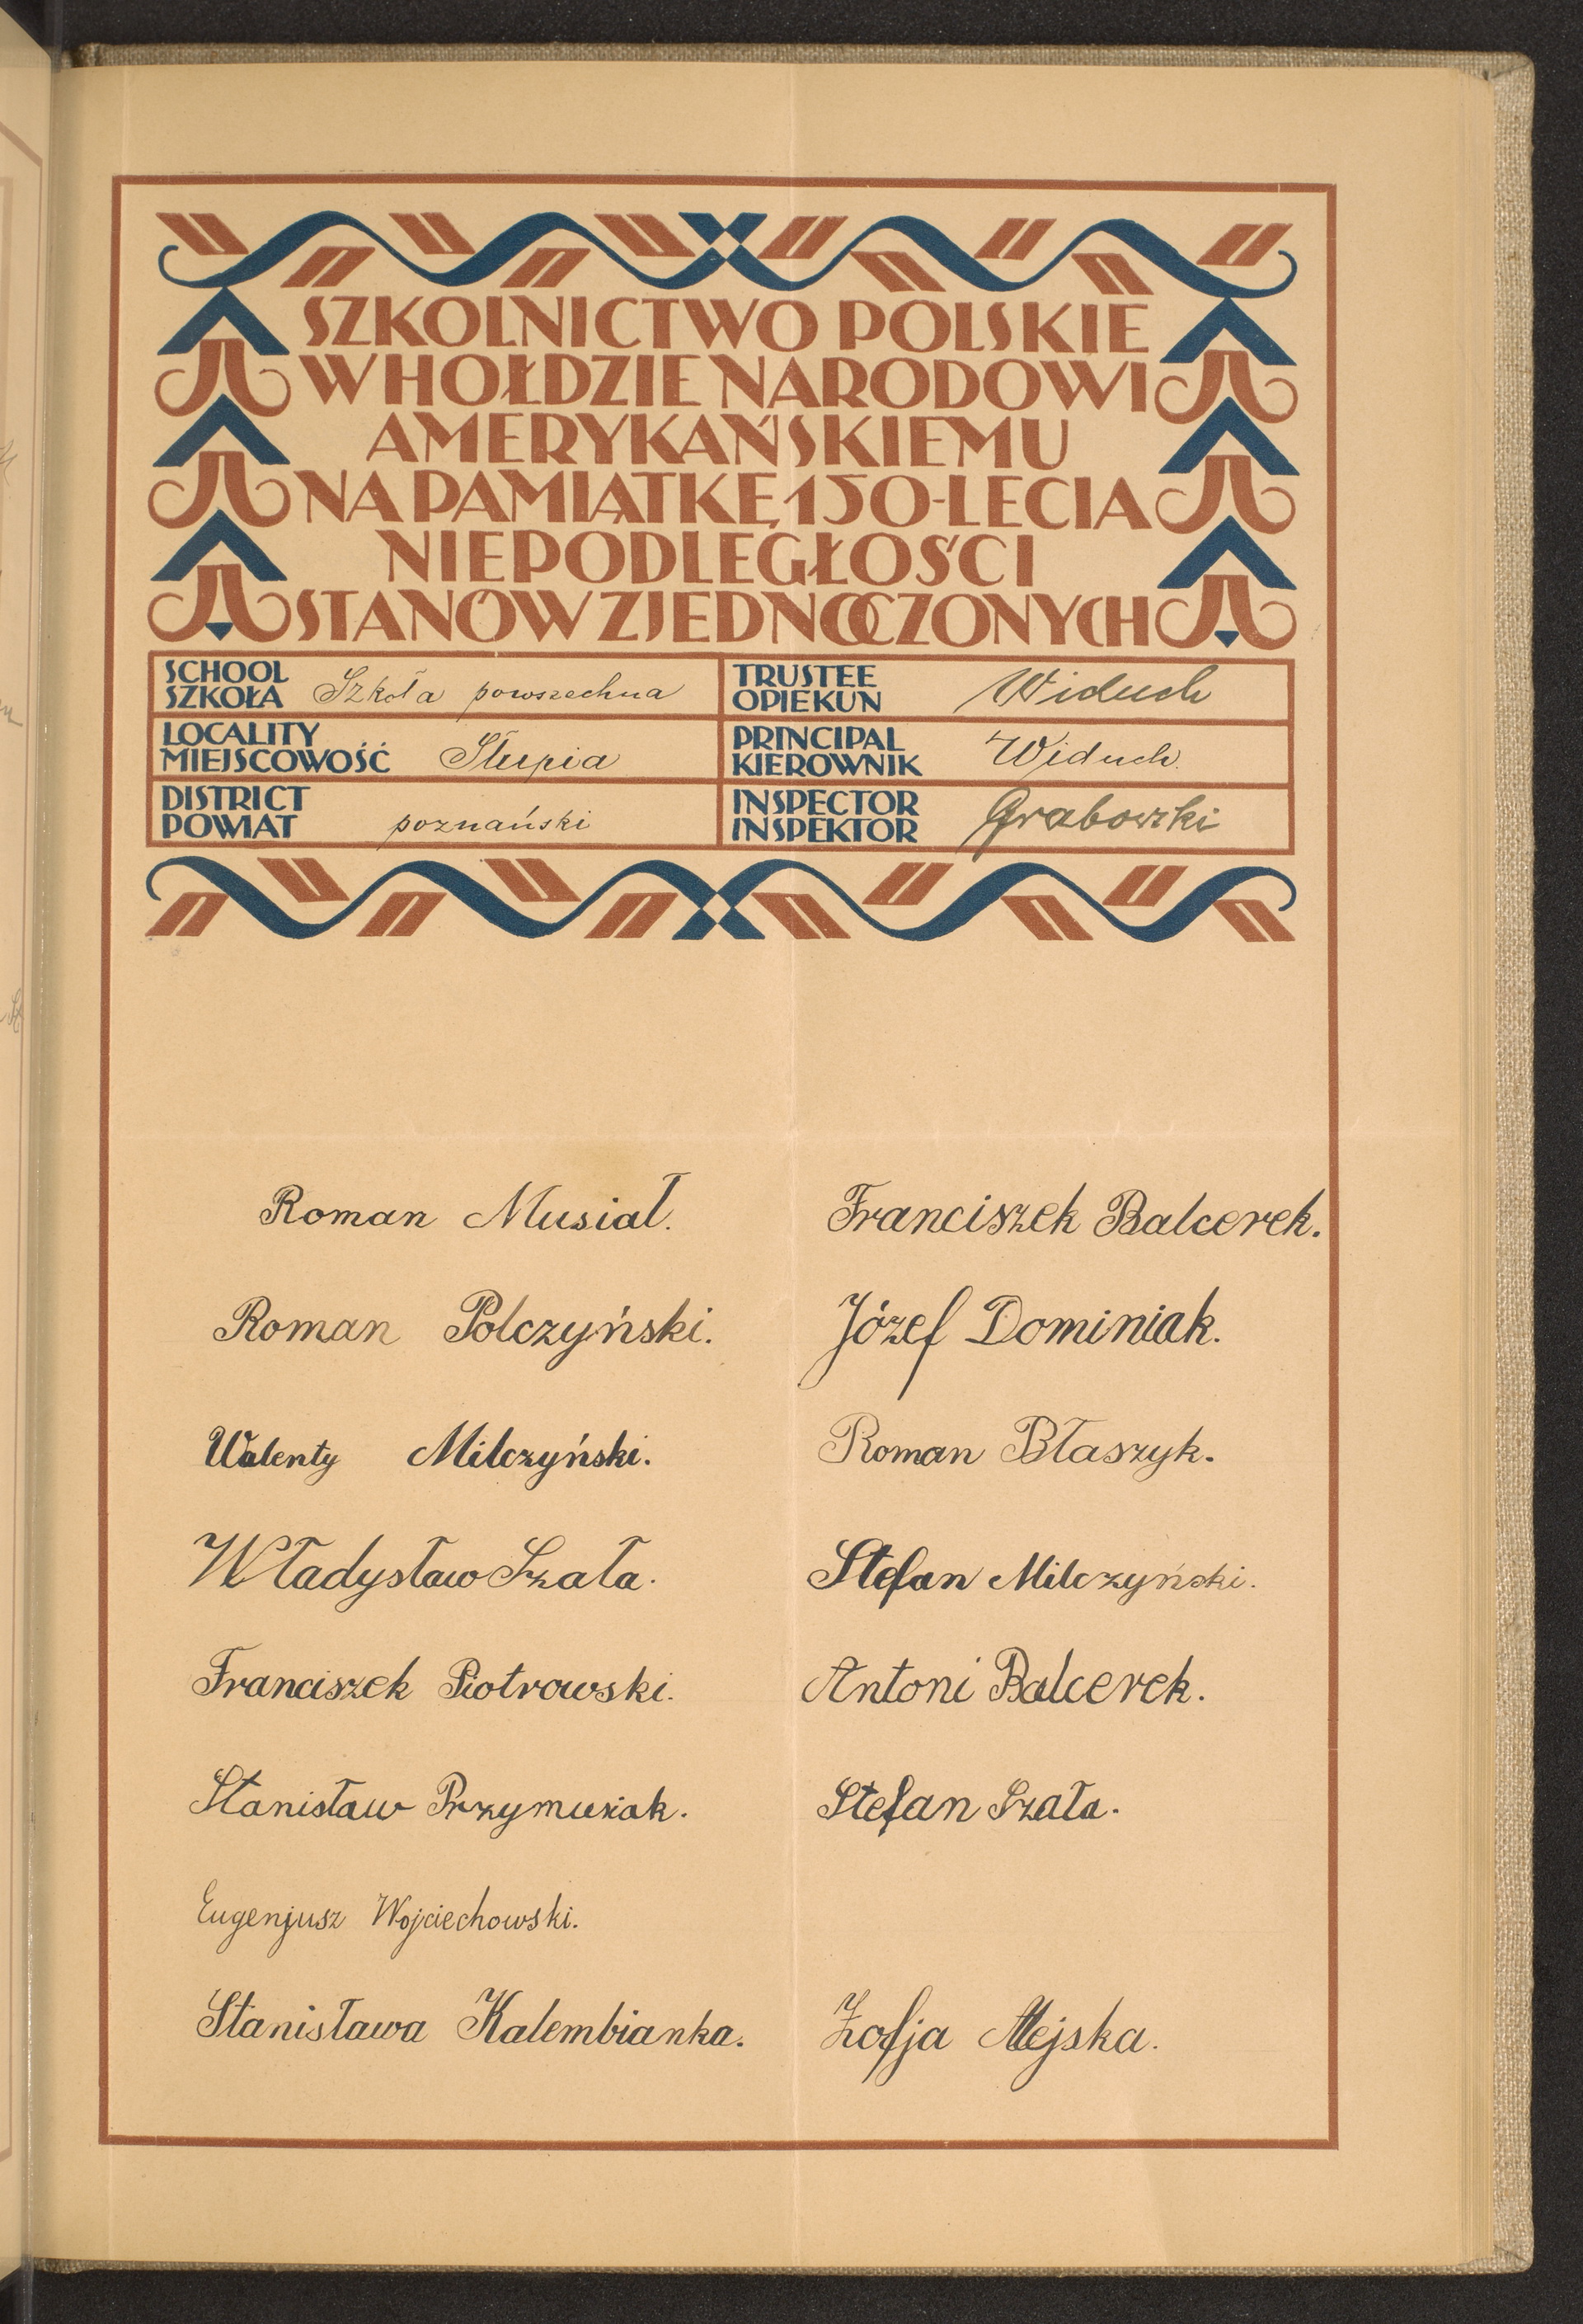 SZKOLNICTWO POLSKIE
W HOŁDZIE NARODOWI
AMERYKAŃSKIEMU
NA PAMIĄTKĘ 150-LECIA
NIEPODLEGŁOŚCI
STANÓW ZJEDNOCZONYCH
SCHOOL
SZKOŁA Szkoła powszechna
TRUSTEE
OPIEKUN Widuch
LOCALITY
MIEJSCOWOŚĆ Słupia
PRINCIPAL
KIEROWNIK Widuch.
DISTRICT
POWIAT poznański
INSPECTOR
INSPEKTOR Grabowski
Roman Musiał.
Franciszek Balcerek.
Roman Polczyński.
Józef Dominiak.
Walenty Milczyński.
Roman Błaszyk.
Władysław Szała.
Stefan Milczyński.
Franciszek Piotrowski.
Antoni Balcerek.
Stanisław Przymusiak.
Stefan Szała.
Eugenjusz Wojciechowski.
Stanisława Kalembianka.
Zofja